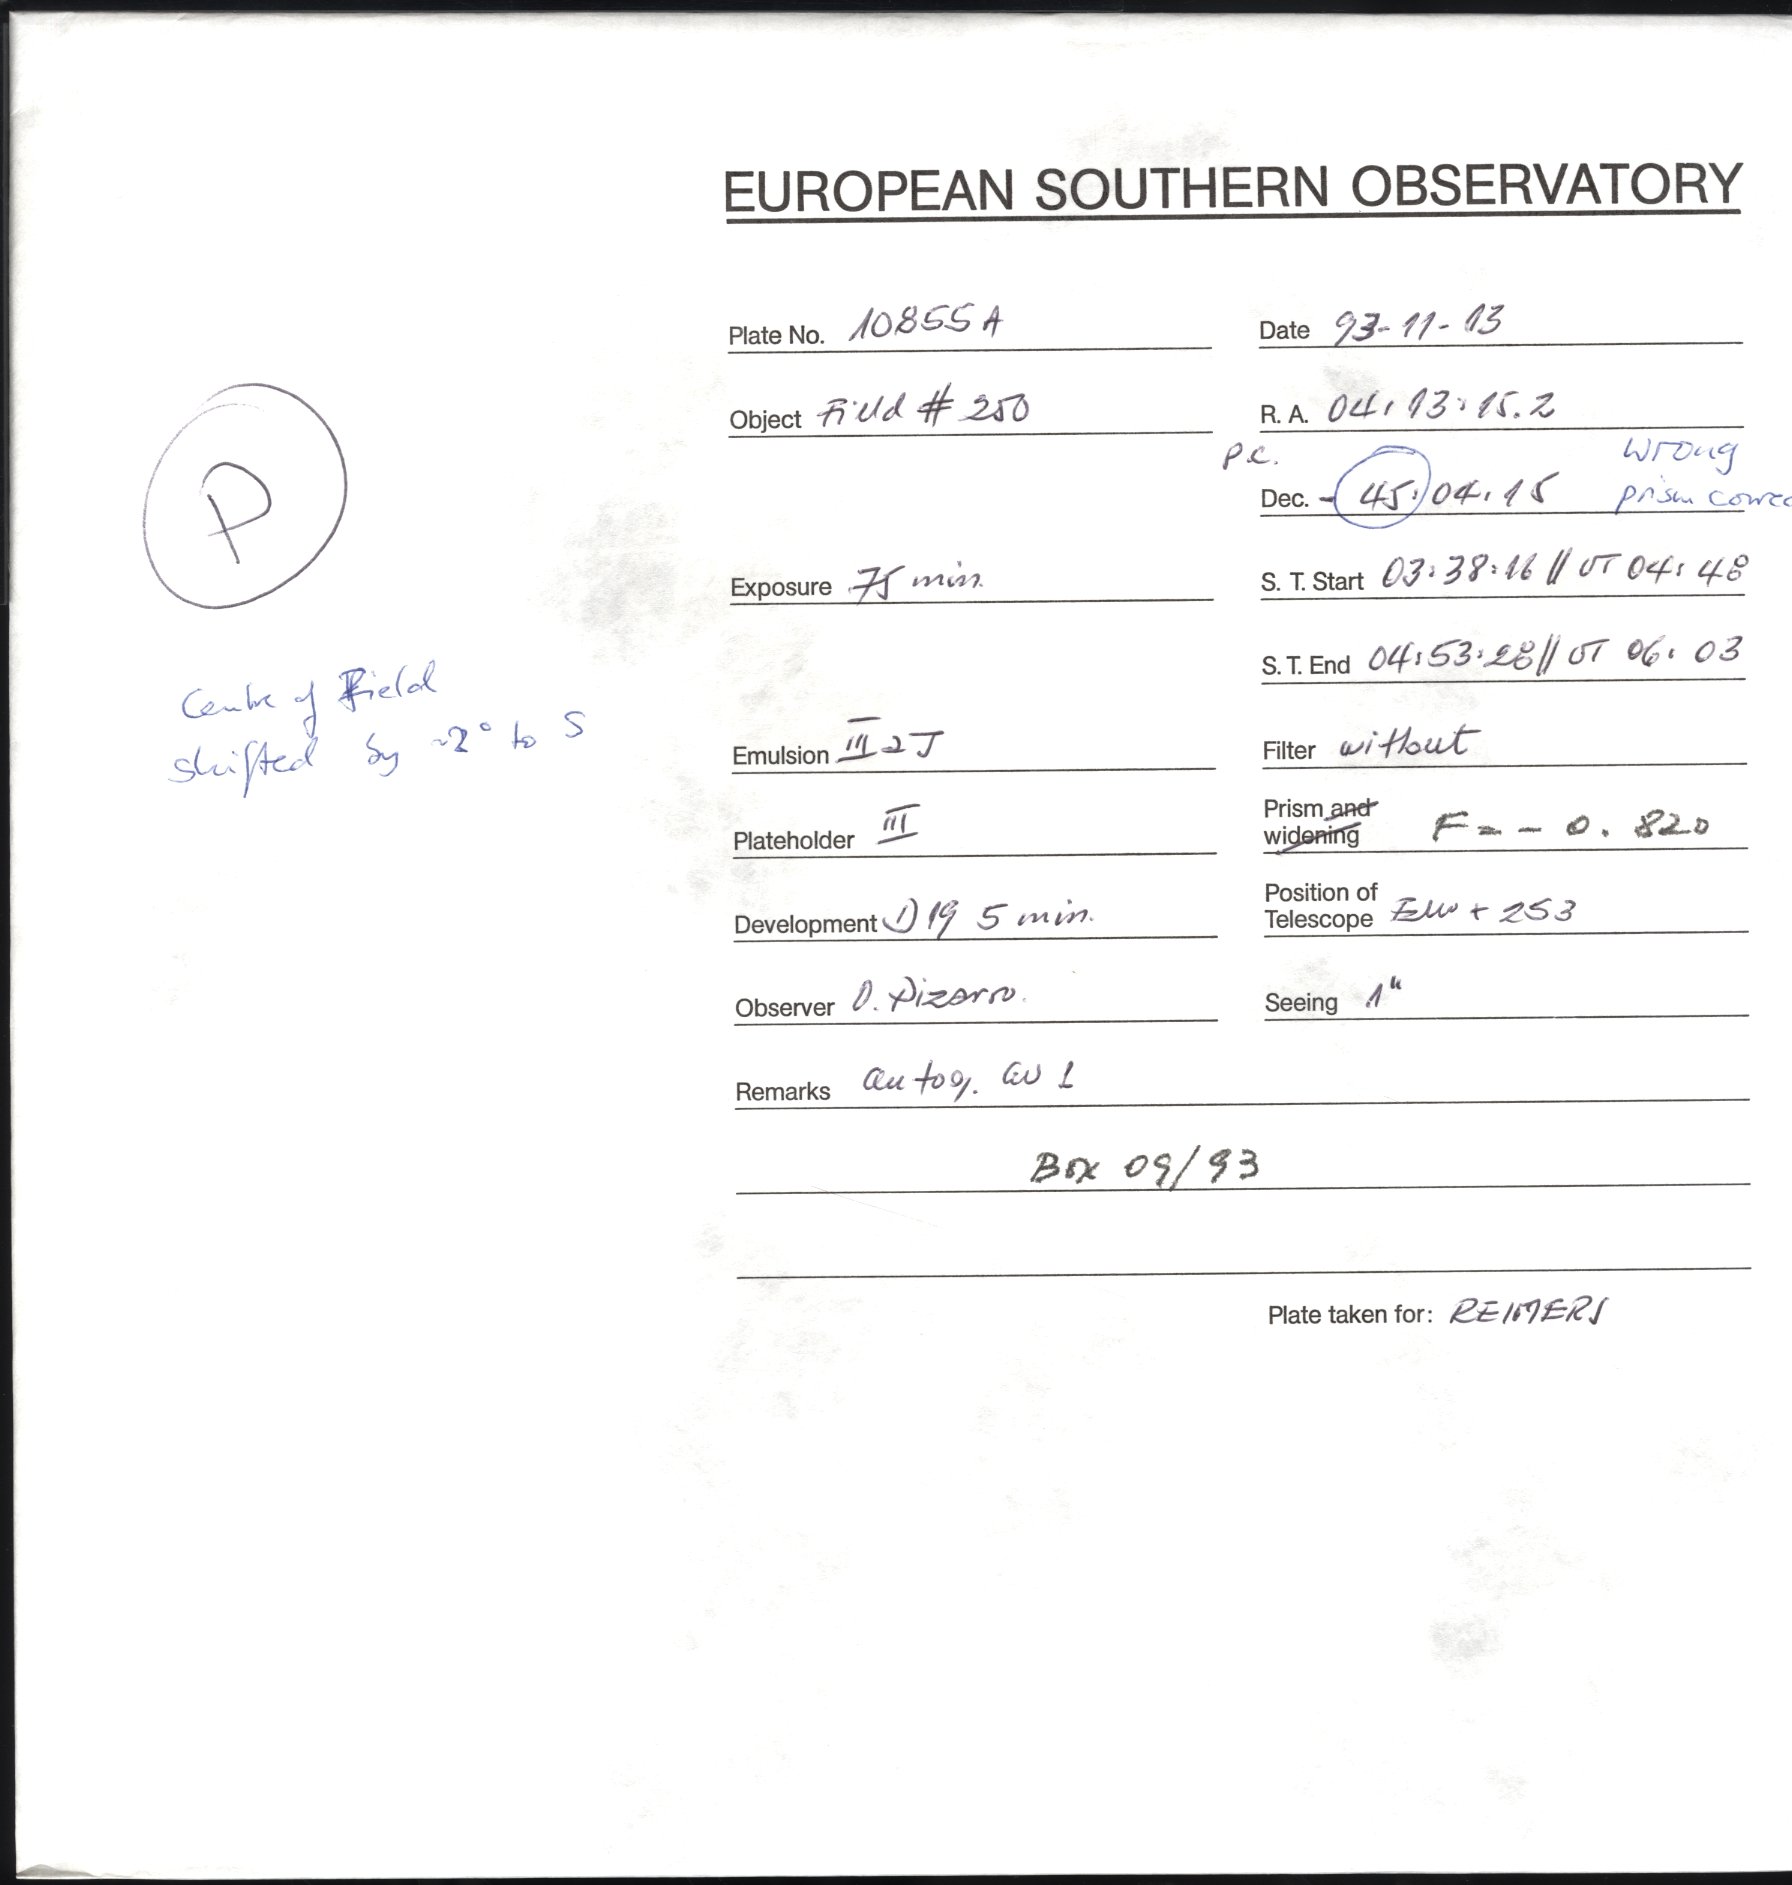 EUROPEAN SOUTHERN OBSERVATORY
Plate No. 10855A
Date 93-11-13
Object Field # 250
R. A. 04:13:15.2
P.C.
wrong
Dec. - 45:04:15
prism correc
P
Exposure 75 min.
S. T. Start 03:38:16 // UT 04:48
S. T. End 04:53:28 // UT 06:03
Centre of Field
shifted by ~2° to S
Emulsion III a J
Filter without
Plateholder III
Prism and widening F = - 0.820
Development D19 5 min.
Position of Telescope EW + 253
Observer O. Pizarro.
Seeing 1"
Remarks autog.
Box 09/93
Plate taken for: REIMERS